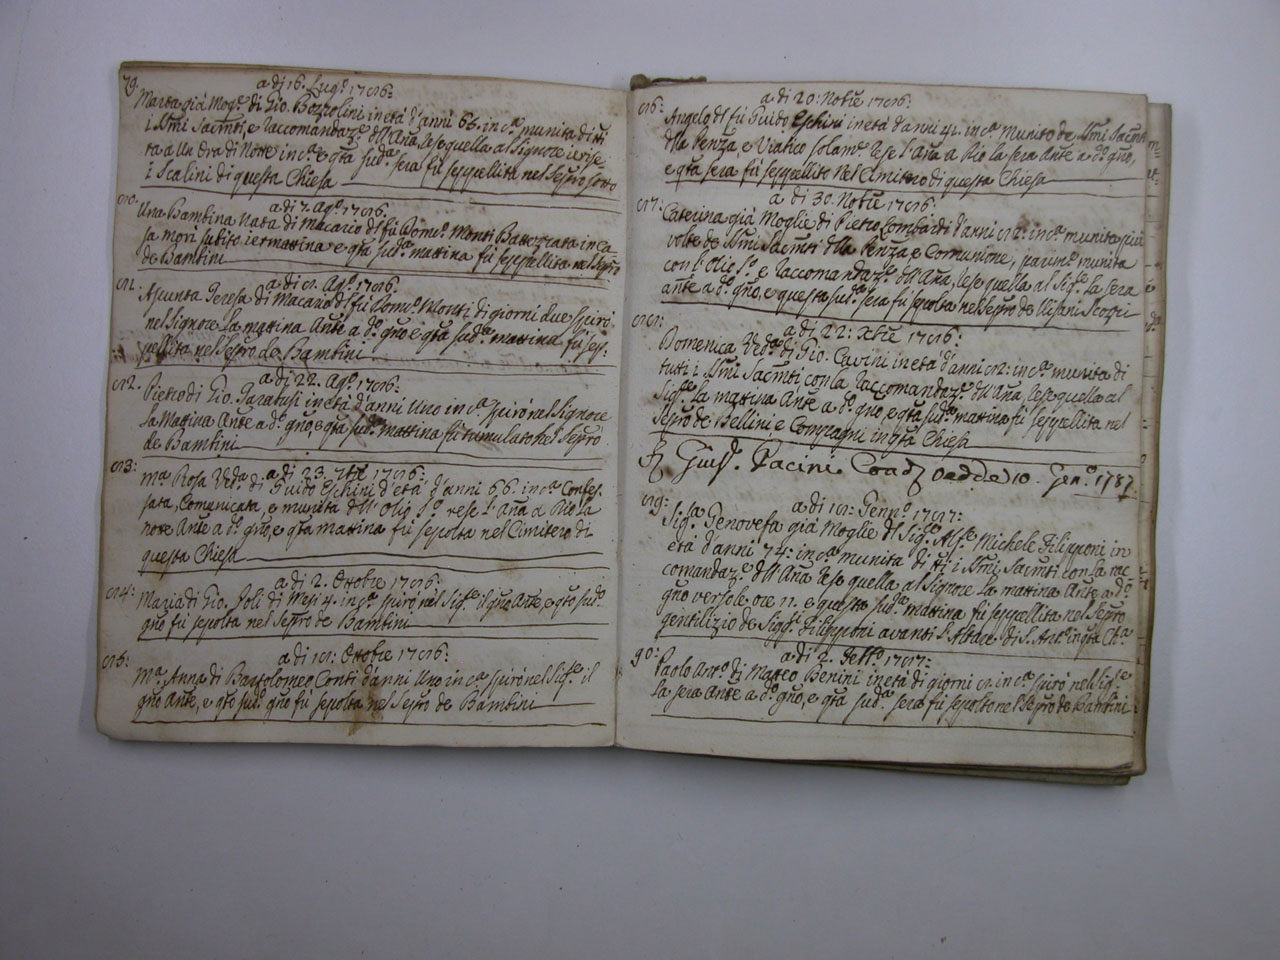 79. a dì 16. Lugº 1786:
Marta già Mogᵉ di Gio. Bozzolini in età d'anni 65. in cª munita di tti
i SSmi Sacmti, e raccomandazᵉ dll'Aña, rese quella al Signore ierise
ra a un Ora di Notte in cª e qta sudª sera fù seppellita nel Sepro sotto
i Scalini di questa Chiesa
80. a dì 7. Agº 1786.
Una Bambina Nata di Macario dl fù Domcº Monti Battezzata in Ca
sa morì subito iermattina e qta sudª mattina fù seppellita nel Sepro
de Bambini
81. a dì 8. Agº 1786.
Assunta Teresa di Macario dl fù Domcº Monti di giorni due spirò
nel Signore la mattina Ante a dº gno e qta sudª mattina fù sep:
pellita nel Sepro de Bambini
82. a dì 22. Agº 1786:
Pietro di Gio. Paratusi in età d'anni Uno in cª spirò nel Signore
la Mattina Ante a dº gno, e qta sudª mattina fù tumulato nel Sepro
de Bambini
83: a dì 23. 7bre 1786:
Mª Rosa Vedª di Guido Eschini d'età d'anni 66. in cª Confes-
sata, Comunicata, e munita dll'Olio Sº rese l'Aña a Dio la
notte Ante a dº gno, e qta mattina fù sepolta nel Cimitero di
questa Chiesa
84: a dì 2. Ottobre 1786:
Maria di Gio. Poli di Mesi 4. in cª spirò nel Sigᵉ il gno Ante, e qto sudº
gno fù sepolta nel Sepro de Bambini
85: a dì 18: Ottobre 1786:
Mª Anna di Bartolomeo Conti d'anni Uno in cª spirò nel Sigᵉ il
gno Ante, e qto sudº gno fù sepolta nel Sepro de Bambini
86: a dì 20: Nobre 1786:
Angelo dl fù Guido Eschini in età d'anni 41. in cª Munito de SSmi Sacmti
dlla Penza, e Viatico solamᵉ rese l'Aña a Dio la sera Ante a dº gno,
e qta sera fù seppellito nel Cimitero di questa Chiesa
87: a dì 30. Nobre 1786:
Caterina già Moglie di Pietro Lombardi d'anni 82: in cª munita più
volte de SSmi Sacmti dlla Penza e Comunione, parimᵉ munita
con l'Olio Sº e raccomandazᵉ dll'Aña, rese quella al Sigᵉ la sera
ante a dº gno, e questa sudª sera fù sepolta nel Sepro de
88: a dì 22: Xbre 1786:
Domenica Vedª di Gio. Cavini in età d'anni 82: in cª munita di
tutti i SSmi Sacmti con la raccomandazᵉ dll'Aña, rese quella al
Sigᵉ la mattina Ante a dº gno, e qta sudª mattina fù seppellita nel
Sepro de Bellini e Compagni in qta Chiesa
Giusᵉ Pacini 10. Genº 1787
89: a dì 18: Gennº 1787:
Sigª Genovefa già Moglie dl Sigᵉ Alfᵉ Michele Filipponi in
età d'anni 74: in cª munita di tti i SSmi Sacmti con la rac
comandazᵉ dll'Aña rese quella al Signore la mattina Ante a dº
gno verso le ore 11. e questa sudª mattina fù seppellita nel Sepro
gentilizio de Siggri Filipponi avanti l'Altare di S. Antº in qta Chª
90: a dì 2. Febbº 1787:
Paolo Antº di Matteo Benini in età di giorni 8. in cª spirò nel Sigᵉ
la sera Ante a dº gno, e qta sudª sera fù sepolto nel Sepro de Bambini